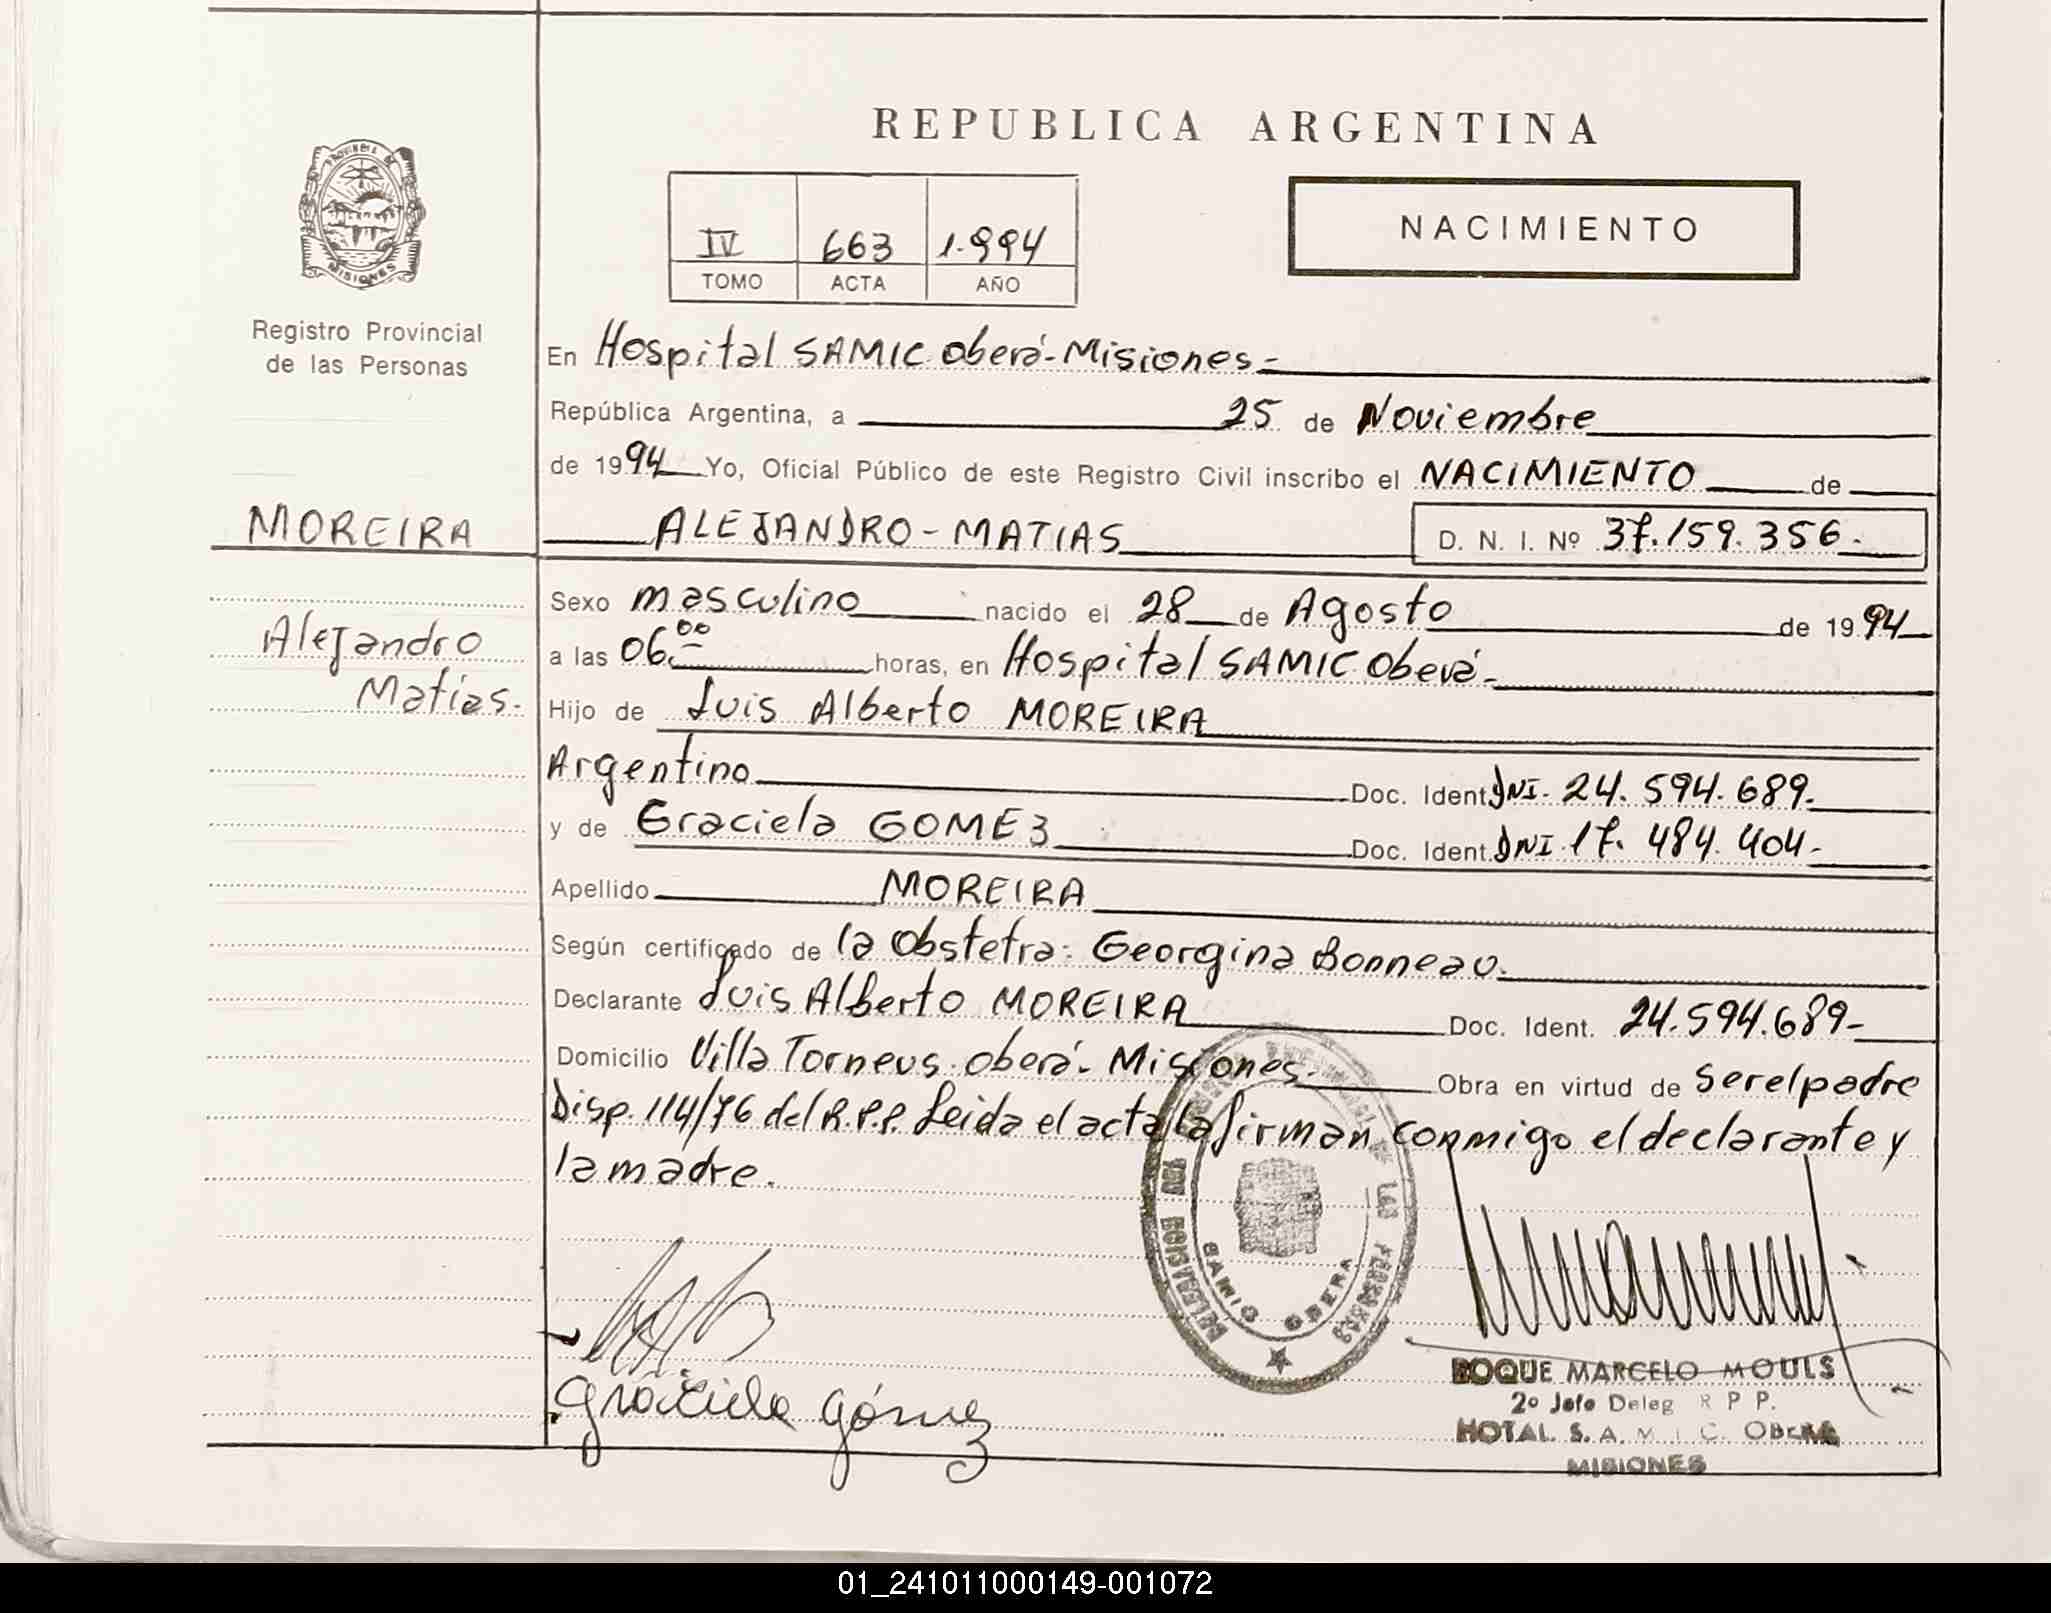 REPUBLICA ARGENTINA
NACIMIENTO
IV 663 1.994
TOMO ACTA AÑO
PROVINCIA DE
MISIONES
Registro Provincial
de las Personas
En Hospital SAMIC Oberá-Misiones-
República Argentina, a 25 de Noviembre
de 1994 Yo, Oficial Público de este Registro Civil inscribo el NACIMIENTO de
MOREIRA
ALEJANDRO-MATIAS D. N. I. Nº 37.159.356.-
Alejandro
Matías.-
Sexo masculino nacido el 28 de Agosto de 1994
a las 06.00 horas, en Hospital SAMIC Oberá-
Hijo de Luis Alberto MOREIRA
Argentino Doc. Ident. DNI- 24.594.689.-
y de Graciela GOMEZ Doc. Ident. DNI-17.484.404.-
Apellido MOREIRA
Según certificado de la Obstetra: Georgina Bonneau.
Declarante Luis Alberto MOREIRA Doc. Ident. 24.594.689-
Domicilio Villa Torneus-oberá-Misiones.- Obra en virtud de ser el padre
Disp.114/76 del R.P.P. Leida el acta la firman conmigo el declarante y
la madre.
DELEGACION
SAMIC OBERA
LAS PERSONAS
Graciela Gómez
ROQUE MARCELO MOULS
2º Jefe Deleg R P P.
HOTAL. S. A. M. I. C. OBERA
MISIONES
01_241011000149-001072